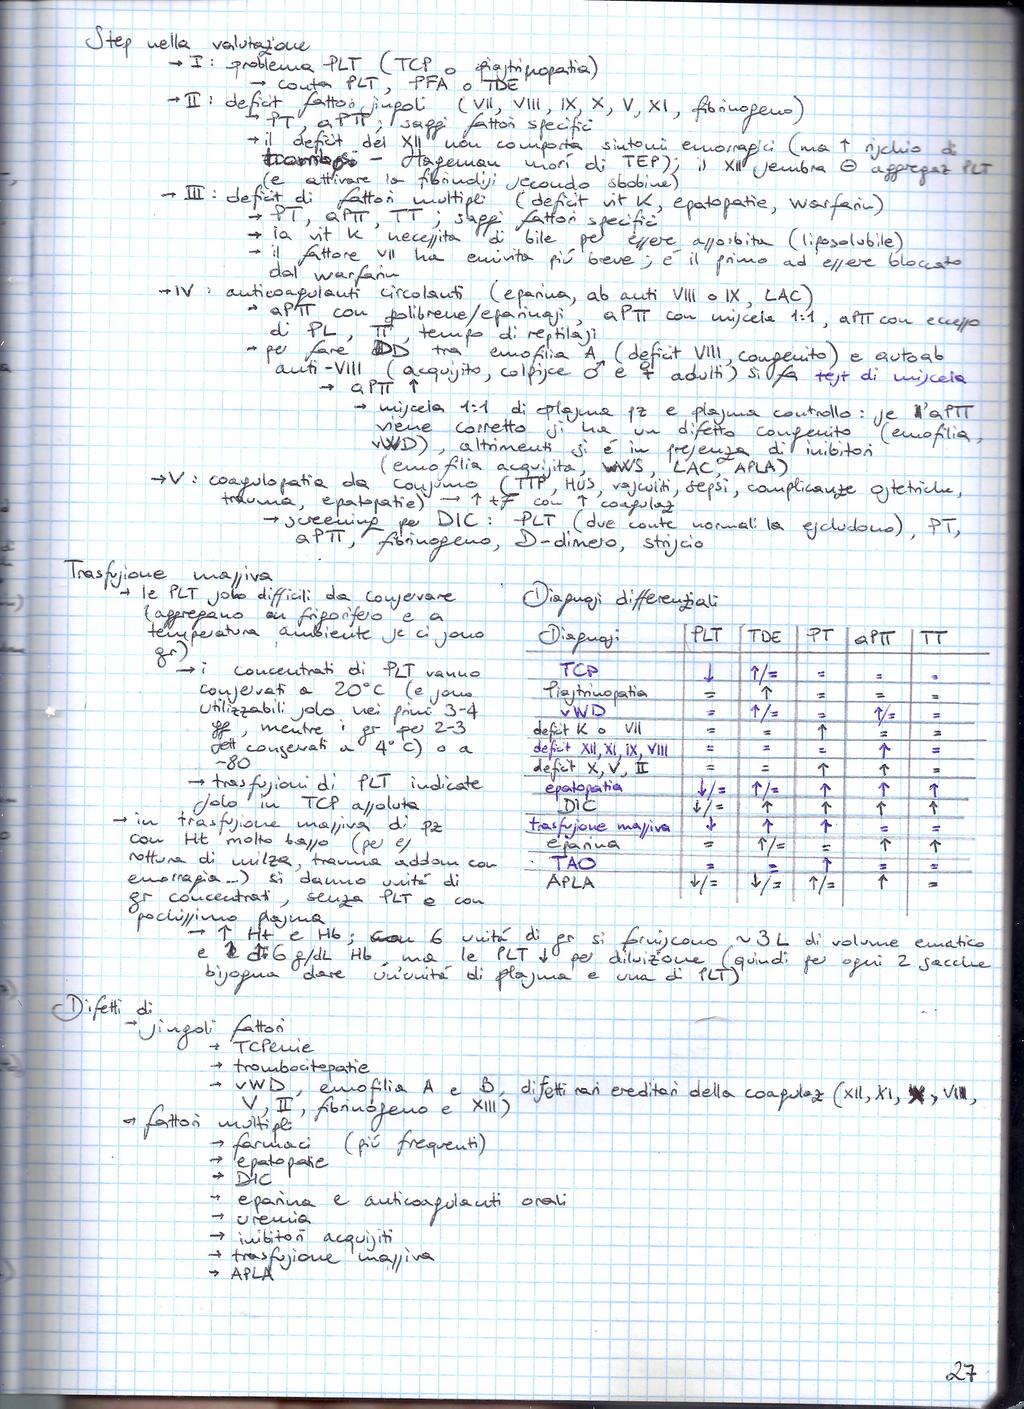 Step nella valutazione
→ I: problema PLT (TCP o piastrinopatia)
→ conta PLT, PFA o TDE
→ II: deficit fattori singoli (VII, VIII, IX, X, V, XI, fibrinogeno)
→ PT, aPTT; saggi fattori specifici
→ il deficit del XII non comporta sintomi emorragici (ma ↑ rischio di
trombosi – Hageman morì di TEP); il XII sembra ⊖ aggregaz PLT
(e attivare la fibrinolisi secondo sbobine)
→ III: deficit di fattori multipli (deficit vit K, epatopatie, warfarin)
→ PT, aPTT, TT; saggi fattori specifici
→ la vit K necessita di bile per essere assorbita (liposolubile)
→ il fattore VII ha emivita più breve; è il primo ad essere bloccato
dal warfarin
→ IV: anticoagulanti circolanti (eparina, ab anti VIII o IX, LAC)
→ aPTT con polibrene/eparinasi, aPTT con miscela 1:1, aPTT con eccesso
di PL, TT, tempo di reptilasi
→ per fare DD tra emofilia A (deficit VIII, congenito) e autoab
anti-VIII (acquisito, colpisce ♂ e ♀ adulti) si fa test di miscela
→ aPTT ↑
→ miscela 1:1 di plasma pz e plasma controllo: se l'aPTT
viene corretto si ha un difetto congenito (emofilia,
vWD), altrimenti si è in presenza di inibitori
(emofilia acquisita, vWS, LAC, APLA)
→ V: coagulopatia da consumo (TTP, HUS, vasculiti, sepsi, complicanze ostetriche,
trauma, epatopatie) → ↑ tF con ↑ coagulaz
→ screening per DIC: PLT (due conte normali la escludono), PT,
aPTT, fibrinogeno, D-dimero, striscio
Trasfusione massiva
→ le PLT sono difficili da conservare
(aggregano in frigorifero e a
temperatura ambiente se ci sono
gr)
→ i concentrati di PLT vanno
conservati a 20°C (e sono
utilizzabili solo nei primi 3-4
gg, mentre i gr per 2-3
sett conservati a 4°C) o a
-80
→ trasfusioni di PLT indicate
solo in TCP assoluta
→ in trasfusione massiva di pz
con Ht molto basso (per es
rottura di milza, trauma addom con
emorragia...) si danno unità di
gr concentrati, senza PLT e con
pochissimo plasma
→ ↑ Ht e Hb; con 6 unità di gr si forniscono ~3L di volume ematico
e ↑ di 6 g/dL Hb, ma le PLT ↓ per diluizione (quindi per ogni 2 sacche
bisogna dare un'unità di plasma e una di PLT)
Diagnosi differenziali
Diagnosi | PLT | TDE | PT | aPTT | TT
TCP | ↓ | ↑/= | = | = | =
Piastrinopatia | = | ↑ | = | = | =
vWD | = | ↑/= | = | ↑/= | =
deficit K o VII | = | = | ↑ | = | =
deficit XII, XI, IX, VIII | = | = | = | ↑ | =
deficit X, V, II | = | = | ↑ | ↑ | =
epatopatia | ↓/= | ↑/= | ↑ | ↑ | ↑
DIC | ↓/= | ↑ | ↑ | ↑ | ↑
trasfusione massiva | ↓ | ↑ | ↑ | = | =
eparina | = | ↑/= | = | ↑ | ↑
TAO | = | = | ↑ | = | =
APLA | ↓/= | ↓/= | ↑/= | ↑ | =
Difetti di
→ singoli fattori
→ TCPenie
→ trombocitopatie
→ vWD, emofilia A e B, difetti rari ereditari della coagulaz (XII, XI, X, VIII,
V, II, fibrinogeno e XIII)
→ fattori multipli
→ farmaci (più frequenti)
→ epatopatie
→ DIC
→ eparina e anticoagulanti orali
→ uremia
→ inibitori acquisiti
→ trasfusione massiva
→ APLA
27